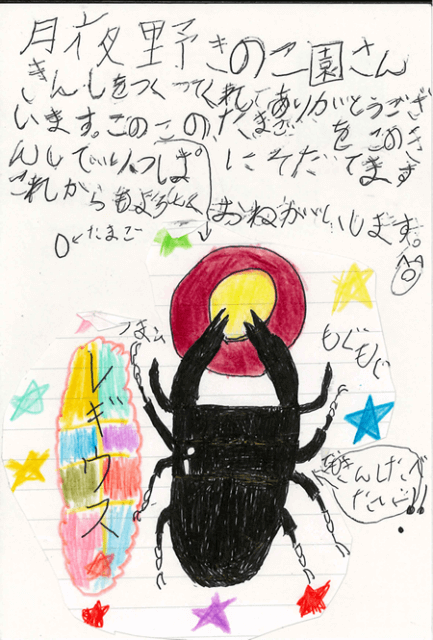 月夜野きのこ園さん
きんしをつくってくれてありがとうござ
います。このこの、たまごをこのき
んしでりっぱ。にそだてます
これからもよろしく
おねがいします。
0←たまご
うまい
もぐもぐ
レギウス
きんしたべ
たいご!!